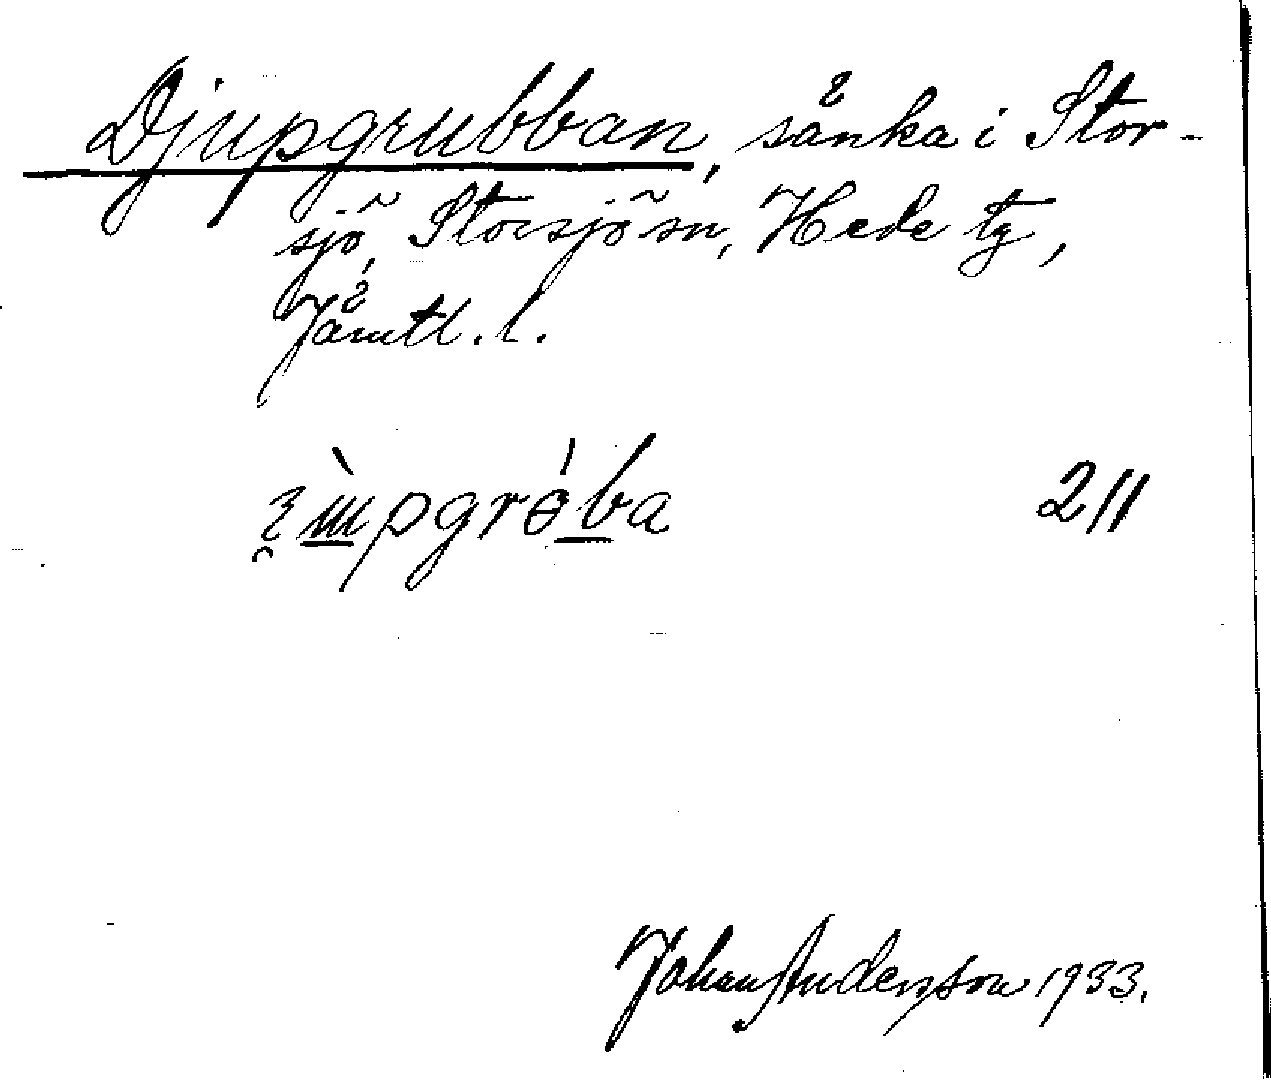 Djupgrubban, sänka i Stor-
sjö, Storsjö sn, Hede tg,
Jämtl. l.
211
Johan Andersson 1933.